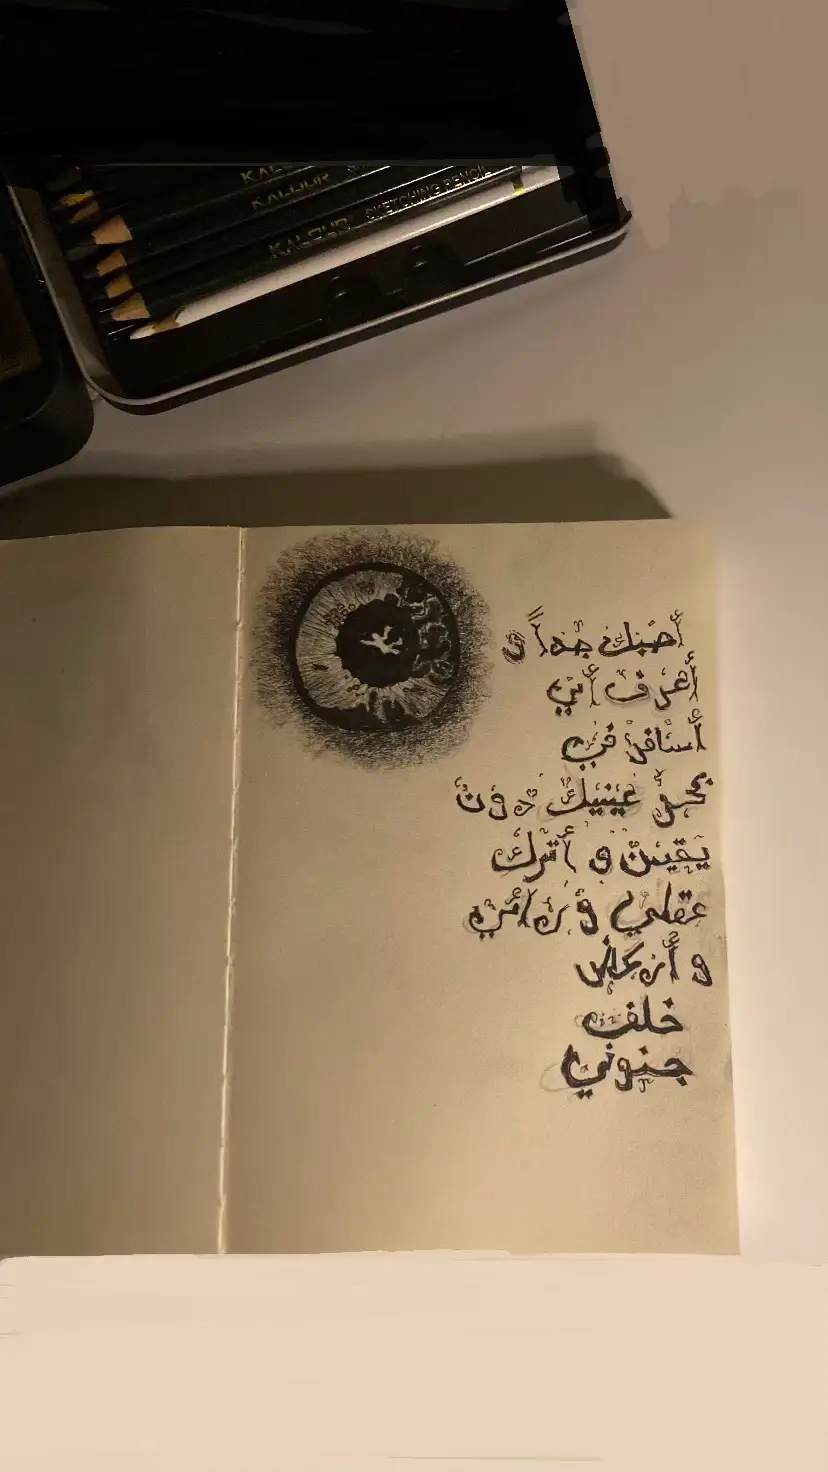 KALOUR
KALOUR
KALOUR SKETCHING PENCIL
أحبك جداً و
أعرف أني
أسافر في
بحر عينيك دون
يقين و أترك
عقلي ورائي
و أركض
خلف
جنوني